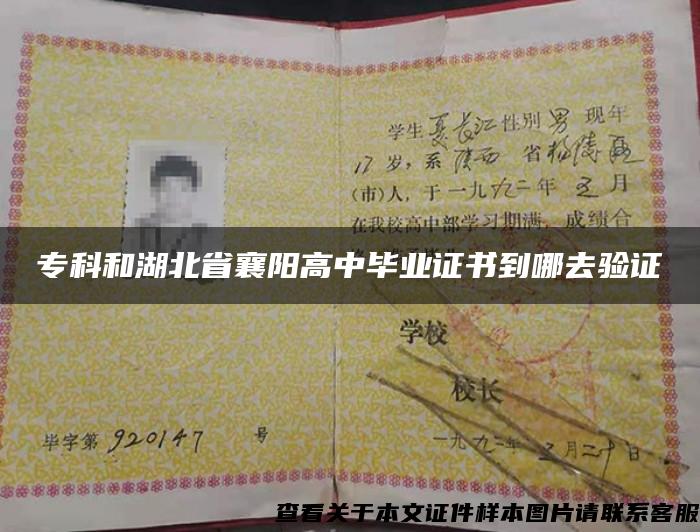 学生夏长江性别男现年
17岁，系陕西省杨陵区
(市)人，于一九九二年五月
在我校高中部学习期满，成绩合
专科和湖北省襄阳高中毕业证书到哪去验证
学校
校长
毕字第920147号
一九九二年五月二十日
查看关于本文证件样本图片请联系客服